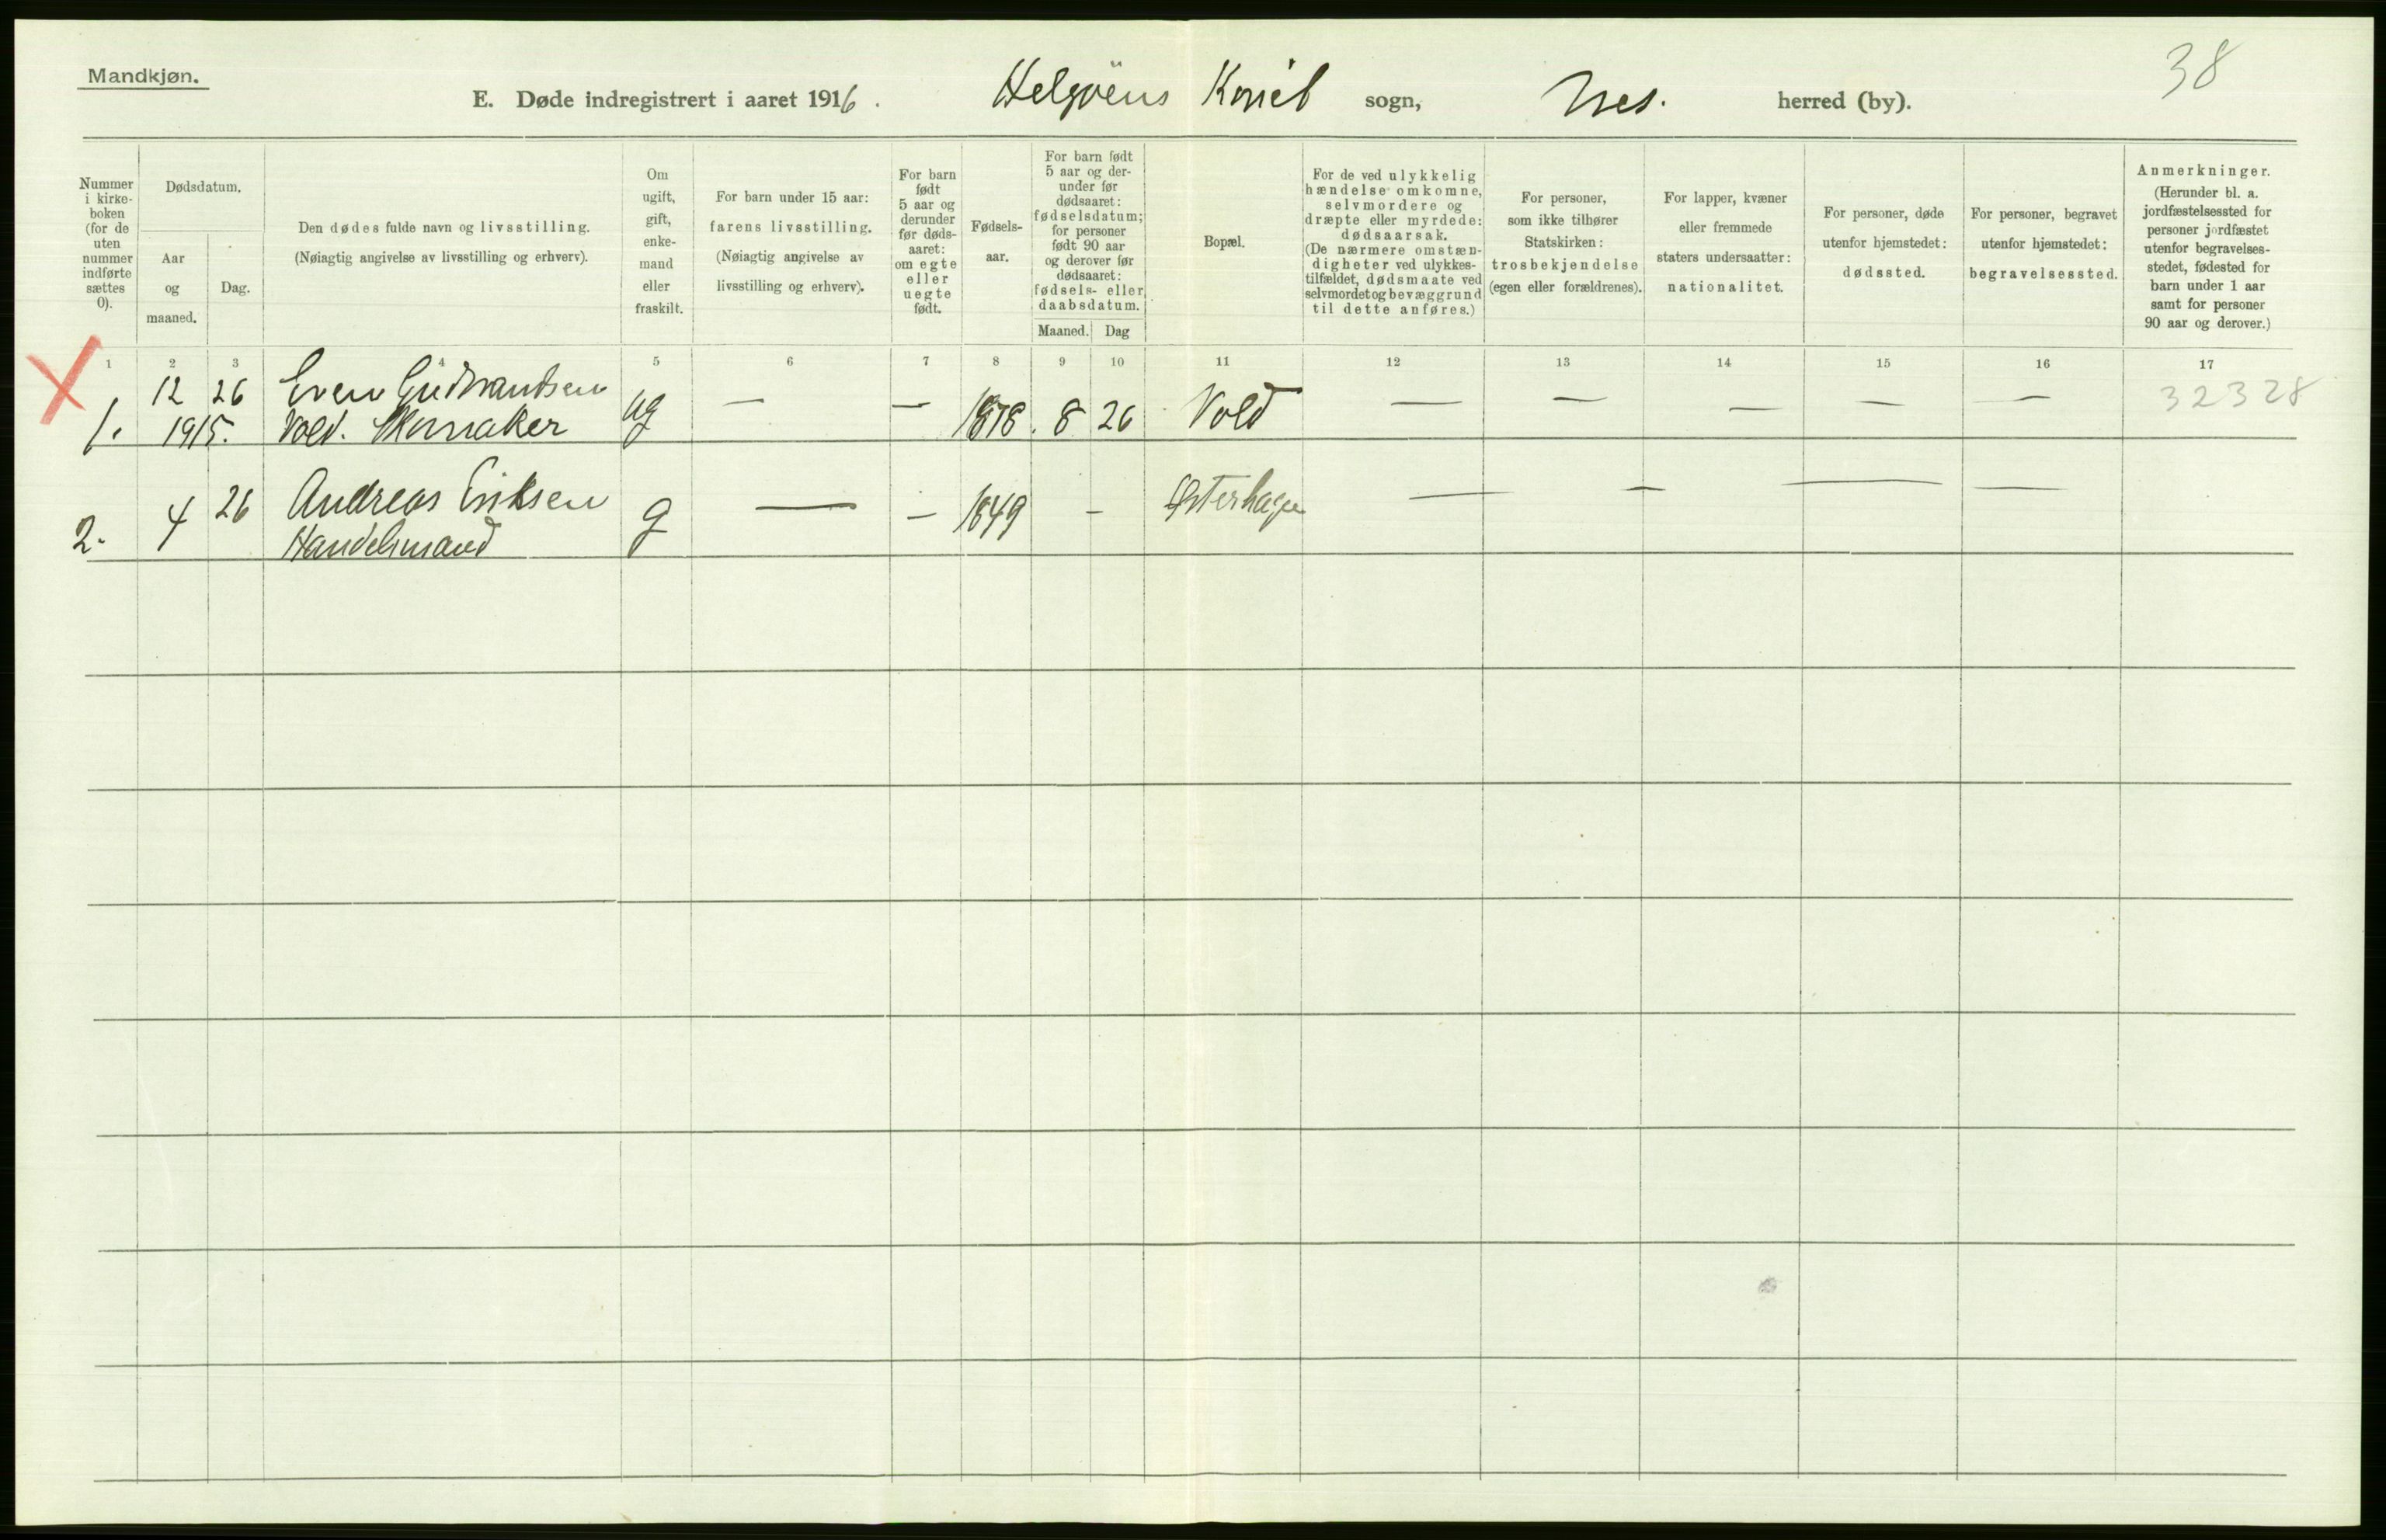 Mandkjøn.
38
E. Døde indregistrert i aaret 1916. Helgøens sogn, Nes. herred (by).
Nummer i kirke- boken (for de uten nummer indførte sættes 0).
Dødsdatum.
Aar og maaned.
Dag.
Den dødes fulde navn og livsstilling.
(Nøiagtig angivelse av livsstilling og erhverv).
Om ugift, gift, enke- mand eller fraskilt.
For barn under 15 aar:
farens livsstilling.
(Nøiagtig angivelse av livsstilling og erhverv).
For barn født 5 aar og derunder før døds- aaret: om egte eller uegte født.
Fødsels- aar.
For barn født 5 aar og der- under før dødsaaret: fødselsdatum; for personer født 90 aar og derover før dødsaaret: fødsels- eller daabsdatum.
Maaned. Dag
Bopæl.
For de ved ulykkelig hændelse omkomne, selvmordere og dræpte eller myrdede: dødsaarsak. (De nærmere omstæn- digheter ved ulykkes- tilfældet, dødsmaate ved selvmordet og bevæggrund til dette anføres.)
For personer, som ikke tilhører Statskirken: trosbekjendelse (egen eller forældrenes).
For lapper, kvæner eller fremmede staters undersaatter: nationalitet.
For personer, døde utenfor hjemstedet: dødssted.
For personer, begravet utenfor hjemstedet: begravelsessted.
Anmerkninger.
(Herunder bl. a. jordfæstelsessted for personer jordfæstet utenfor begravelses- stedet, fødested for barn under 1 aar samt for personer 90 aar og derover.)
1 2 3 4 5 6 7 8 9 10 11 12 13 14 15 16 17
12 26 Even Gudbrandsen 32328
1. 1915. Vold. Skomaker ug — — 1878. 8 26 Vold — — — — —
4 26 Andreas Eriksen g — — 1849 — Østerhagen — — — —
2. Handelsmand